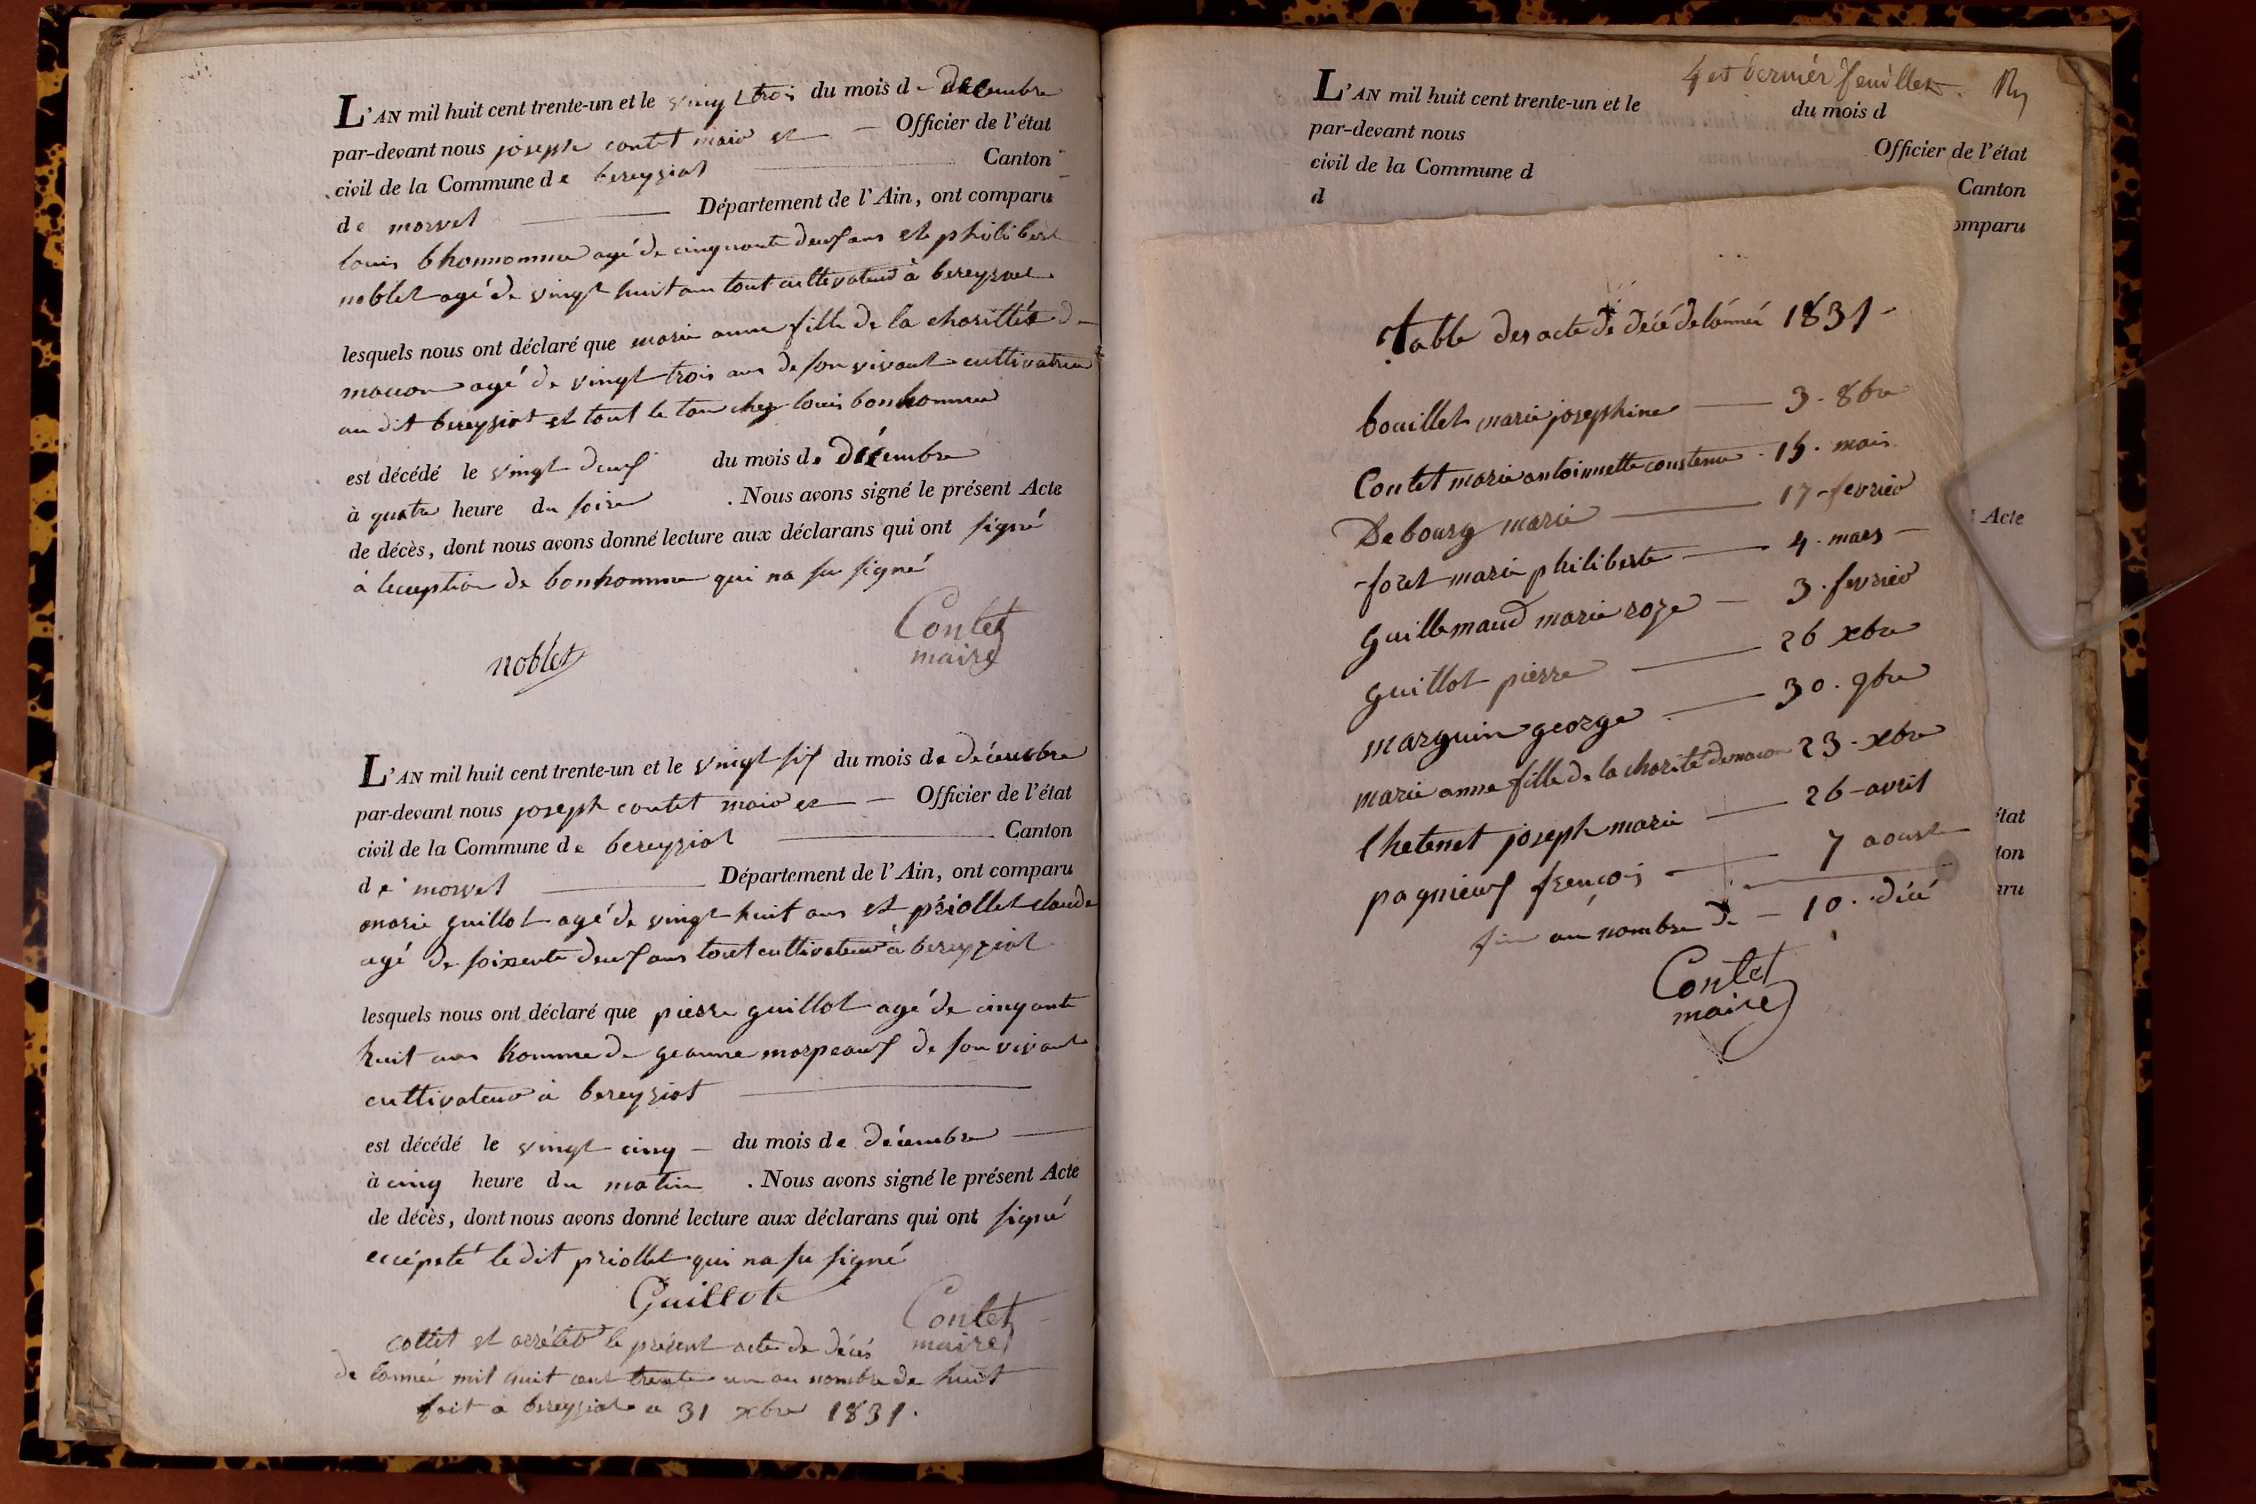 L'AN mil huit cent trente-un et le vingt trois du mois de décembre
par-devant nous joseph contet maire et — Officier de l'état
civil de la Commune de bereyziat Canton
de marvet Département de l'Ain, ont comparu
louis bhonnomme agé de cinquante deuf ans et philibert
noblet agé de vingt huit an tout cultivateur à bereyziat
lesquels nous ont déclaré que marie anne fille de la charittéé de
macon agé de vingt trois ans de son vivant cultivatrice
au dit bereyziat et tout le tan chez louis bonhomme
est décédé le vingt deuf du mois de décembre
à quatre heure du soire . Nous avons signé le présent Acte
de décès, dont nous avons donné lecture aux déclarans qui ont signé
à leception de bonhomme qui na su signé
Contet
noblet maire
L'AN mil huit cent trente-un et le vingt sif du mois de décembre
par-devant nous joseph contet maire et — Officier de l'état
civil de la Commune de bereyziat Canton
de marvet Département de l'Ain, ont comparu
marie guillot agé de vingt huit ans et priollet claude
agé de soixente deuf ans tout cultivateur à bereyziat
lesquels nous ont déclaré que pierre guillot agé de cinqante
huit ans homme de geanne marpeauf de son vivant
cultivateur à bereyziat
est décédé le vingt cinq — du mois de décembre
à cinq heure du matin . Nous avons signé le présent Acte
de décès, dont nous avons donné lecture aux déclarans qui ont signé
eccépté le dit priollet qui na su signé
Guillot Contet
maire
cottet et arrétér le présent acte de décés
de lanneé mil huit cent trente un au nombre de huit
fait à bereyziat le 31 xbre 1831.
4 et dernier feuillet.
L'AN mil huit cent trente-un et le du mois d
par-devant nous Officier de l'état
civil de la Commune d Canton
d omparu
Table des acte de décé de lanneé 1831
bouillet marie josephine — 3. 8bre
Contet marie antoinnette constence . 15. mars
Debourg marie — 17 fevrier
foret marie philiberte — 4. mars
guillemaud marie roze — 3. fevrier
guillot pierre — 26 xbre
marguin george — 30. 9bre
marie anne fille de la charité de macon 23. xbre
thetenet joseph marie — 26 avril
pagnieuf françois — 7 aoust
fin au nombre de — 10. décé
Contet
maire
Acte
état
ton
aru